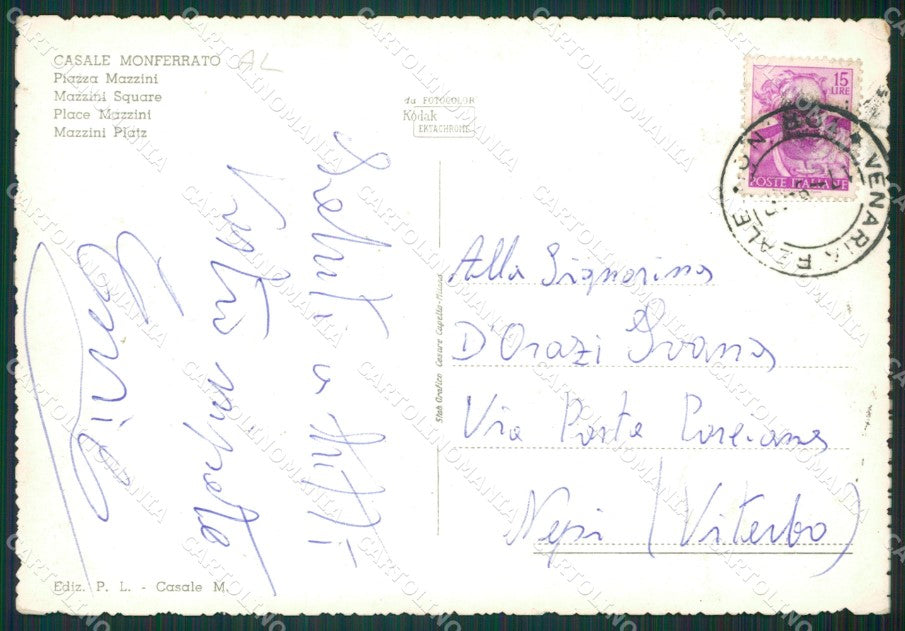 CASALE MONFERRATO AL
Piazza Mazzini
Mazzini Square
Place Mazzini
Mazzini Platz
da FOTOCOLOR
Kodak
EKTACHROME
15
LIRE
POSTE ITALIANE
VENARIA REALE
Saluti a tutti
Vostro nipote
Alla Signorina
D'Orazi Ivana
Via Porta Porciana
Nepi (Viterbo)
Stab. Grafico Cesare Capello - Milano
Ediz. P. L. - Casale M.
CARTOLINOMANIA